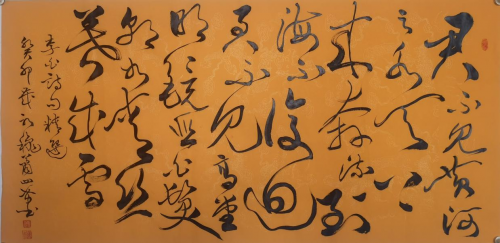 君不见黄河
之水天上
来奔流到
海不復迴
君不见高堂
明镜悲白髮
朝如青丝
暮成雪
李白詩句精選
癸卯歲初